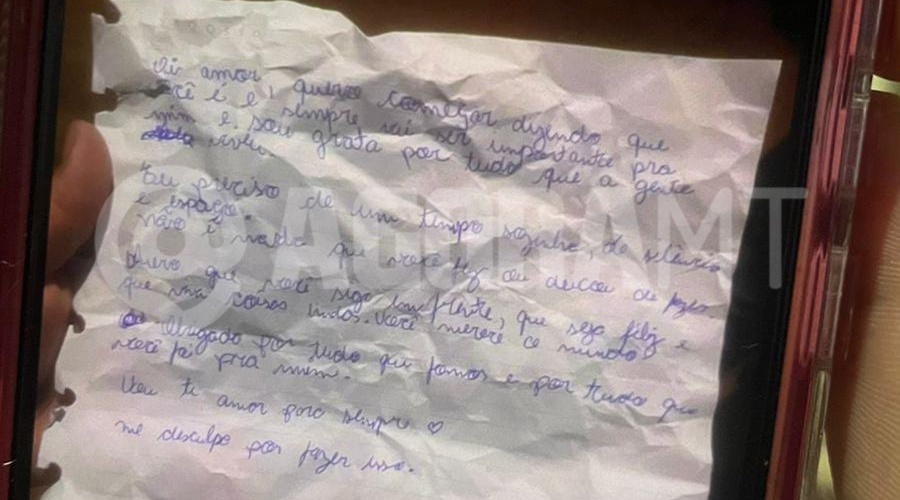 Oi amor
quero começar dizendo que
você é e sempre vai ser importante pra
mim e sou grata por tudo que a gente
viveu.
Eu preciso de um tempo sozinha, de silêncio
e espaço.
não é nada que você fez ou deixou de fazer
Quero que você siga em frente, que seja feliz e
que viva coisas lindas. Você merece o mundo
Obrigado por tudo que fomos e por tudo que
você foi pra mim.
Vou te amar para sempre ♡
me desculpa por fazer isso.
@AGORAMT